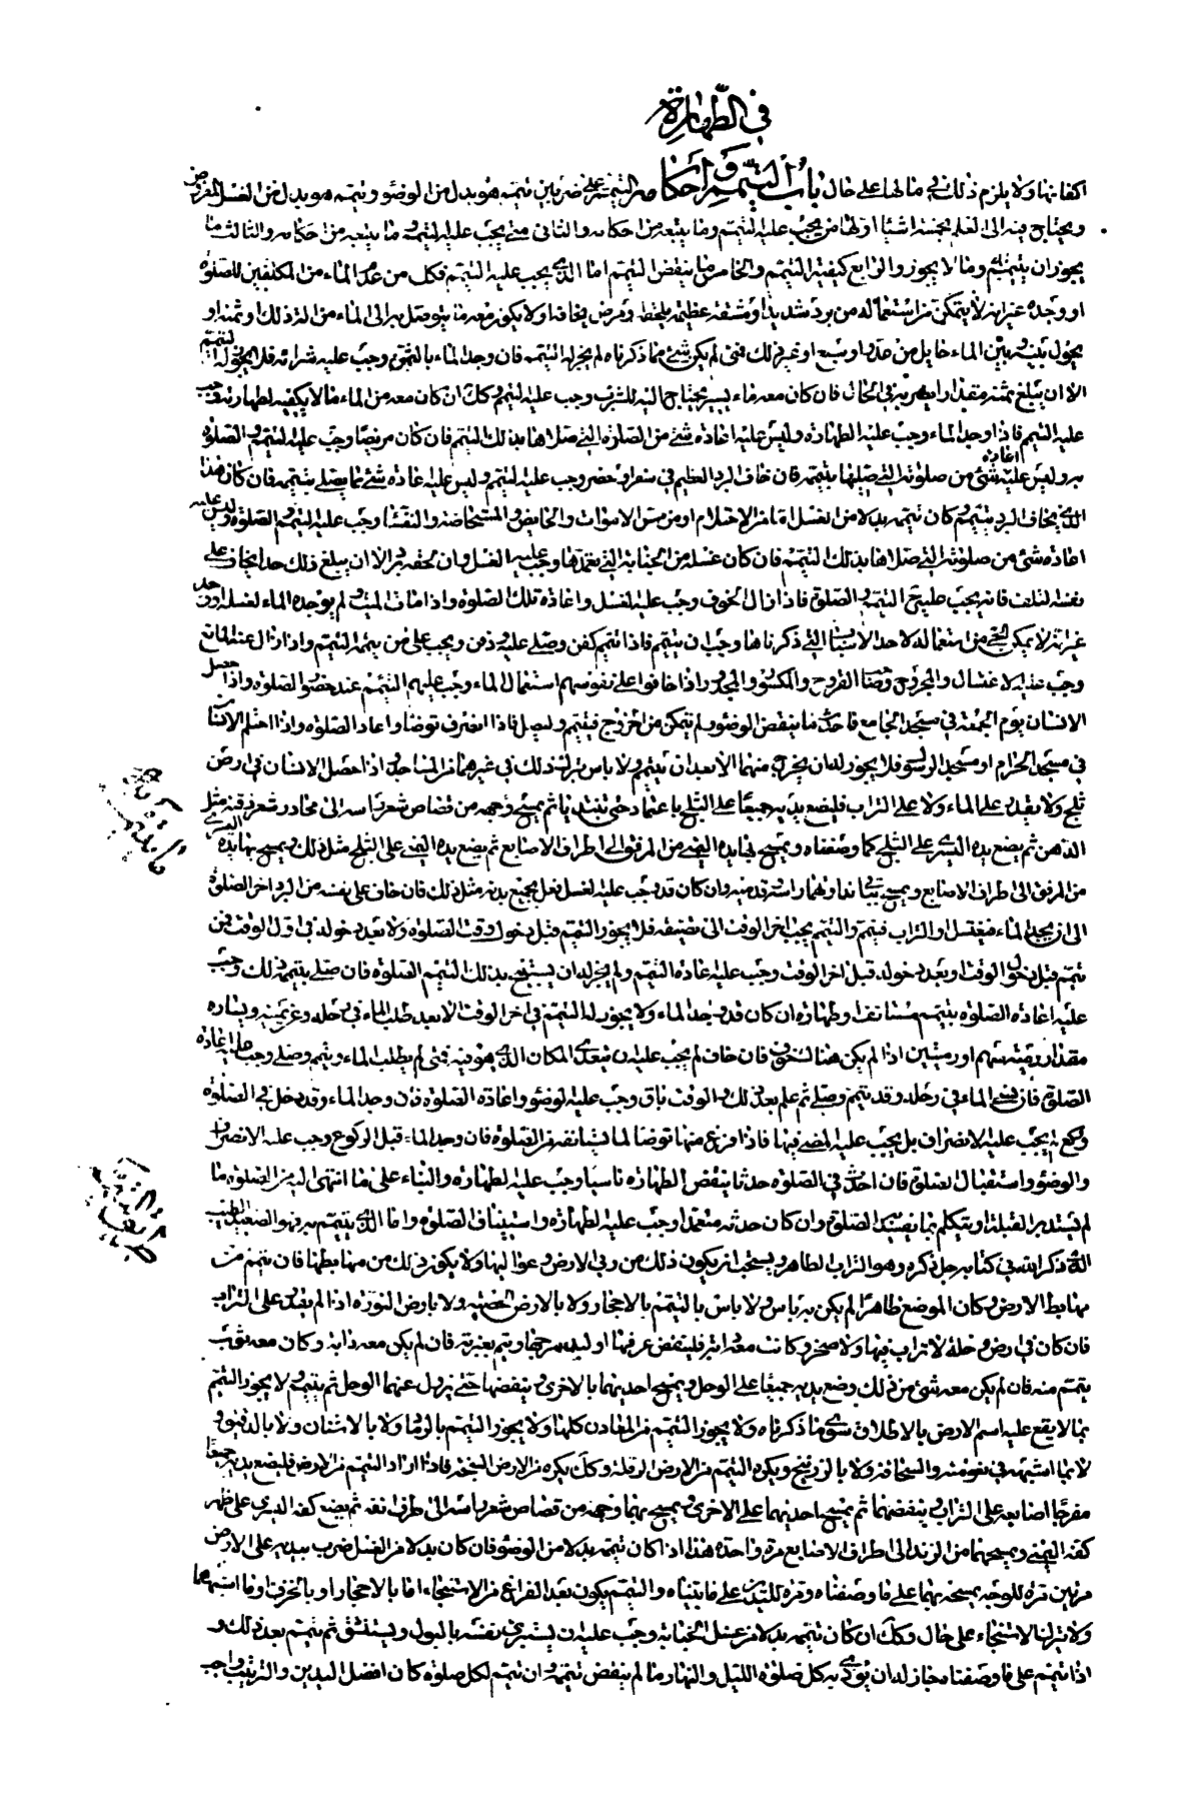 في الطهارة
اكفانها ولا يلزم ذلك في مالها على حال باب التيمم واحكامه التيمم على ضربين تيمم هو بدل من الوضوء وتيمم هو بدل من الغسل المفروض
ويحتاج فيه الى العلم بخمسة اشياء اولها من يجب عليه التيمم وما يتبعه من احكامه والثاني متى يجب عليه التيمم وما يتبعه من احكامه والثالث ما
يجوز ان يتيمم به وما لا يجوز والرابع كيفية التيمم والخامس ما ينقض التيمم اما الذي يجب عليه التيمم فكل من عدم الماء من المكلفين للصلوة
او وجده غير انه لا يتمكن من استعماله من برد شديد او مشقة عظيمة تلحقه او مرض يخافه او لا يكون معه ما يتوصل به الى الماء من الة ذلك او ثمنه او
يحول بينه وبين الماء حايل من عدو او سبع او غير ذلك فمتى لم يكن شئ مما ذكرناه لم يجز له التيمم فان وجد الماء بالثمن وجب عليه شرائه فلا يجوز له التيمم
الا ان يبلغ ثمنه مقدارا يضر به في الحال فان كان معه ماء يسير يحتاج اليه للشرب وجب عليه التيمم وكك ان كان معه من الماء ما لا يكفيه لطهارته وجب
عليه التيمم فاذا وجد الماء وجب عليه الطهارة وليس عليه اعادة شئ من الصلوة التي صلاها بذلك التيمم فان كان مريضا وجب عليه التيمم والصلوة
به وليس عليه اعادة شئ من صلوته التي صليها بتيممه فان خاف البرد العظيم في سفر او حضر وجب عليه التيمم وليس عليه اعادة شئ مما يصلى بتيممه فان كان هذا
الذي يخاف البرد بتيمم وكان تيممه بدلا من الغسل اما من الاحتلام او من مس الاموات والحايض والمستحاضة والنفساء وجب عليه التيمم والصلوة وليس عليه
اعادة شئ من صلوته التي صلاها بذلك التيمم فان كان غسله من الجنابة التي تعمدها وجب عليه الغسل وان لحقه برد الا ان يبلغ ذلك حدا يخاف على
نفسه التلف فانه يجب عليه ح التيمم والصلوة فاذا زال الخوف وجب عليه الغسل واعادة تلك الصلوة واذا مات الميت ولم يوجد الماء لغسله او وجد
غير انه لا يمكن الحي من استعماله لاحد الاسباب التي ذكرناها وجب ان يتيمم فاذا تيمم كفن وصلى عليه ودفن ويجب على من يممه التيمم واذا زال عنه المانع
وجب عليه الاغتسال والمجروح وصاحب القروح والمكسور والمجدور اذا خافوا على نفوسهم استعمال الماء وجب عليهم التيمم عند حضور الصلوة واذا حصل
الانسان يوم الجمعة في مسجد الجامع فاحدث ما ينقض الوضوء ولم يتمكن من الخروج فليتيمم وليصل فاذا انصرف توضأ واعاد الصلوة واذا احتلم الانسان
في مسجد الحرام او مسجد الرسول فلا يجوز له ان يخرج منهما الا بعد ان يتيمم ولا باس بترك ذلك في غيرهما من المساجد واذا حصل الانسان في ارض
ثلج ولا يقدر على الماء ولا على التراب فليضع يديه جميعا على الثلج باعتماد حتى تتنديا ثم يمسح وجهه من قصاص شعر راسه الى محادر شعر ذقنه مثل
الدهن ثم يضع يده اليسرى على الثلج كما وصفناه ويمسح بها يده اليمنى من المرفق الى اطراف الاصابع ثم يضع يده اليمنى على الثلج مثل ذلك ويمسح بها يده اليسرى
من المرفق الى اطراف الاصابع ويمسح راسه قدميه وان كان قد يجب عليه الغسل فعل بجميع بدنه مثل ذلك فان خاف على نفسه من البرد اخر الصلوة
الى ان يجد الماء فيغتسل او التراب فيتيمم والتيمم يجب اخر الوقت الى تضيقه فلا يجوز التيمم قبل دخول وقت الصلوة ولا بعد دخوله في اول الوقت فمن
تيمم قبل دخول الوقت او بعد دخوله قبل اخر الوقت وجب عليه اعادة التيمم ولم يجز له ان يستبيح بذلك التيمم الصلوة فان صلى بتيممه ذلك وجب
عليه اعادة الصلوة بتيمم مستانف او طهارة ان كان قد وجد الماء ولا يجوز له التيمم في اخر الوقت الا بعد طلب الماء في رحله وعن يمينه ويساره
مقدار رمية سهم او رميتين اذا لم يكن هناك خوف فان خاف لم يجب عليه ان يتعدى المكان الذي هو فيه فمتى لم يطلب الماء وتيمم وصلى وجب عليه اعادة
الصلوة فان نسي الماء في رحله وقد تيمم وصلى ثم علم بعد ذلك والوقت باق وجب عليه الوضوء واعادة الصلوة فان وجد الماء وقد دخل في الصلوة
وركع لم يجب عليه الانصراف بل يجب عليه المضي فيها فاذا فرغ منها توضأ لما يستانف من الصلوة فان وجد الماء قبل الركوع وجب عليه الانصراف
والوضوء واستقبال الصلوة فان احدث في الصلوة حدثا ينقض الطهارة ناسيا وجب عليه الطهارة والبناء على ما انتهى اليه من الصلوة ما
لم يستدبر القبلة او يتكلم بما يفسد الصلوة وان كان حدثه متعمدا وجب عليه الطهارة واستيناف الصلوة واما الذي يتيمم به فهو الصعيد الطيب
الذي ذكر الله في كتابه جل ذكره وهو التراب الطاهر ويستحب ان يكون ذلك من ربى الارض وعواليها ولا يكون ذلك من مهابطها فان تيمم من
مهابط الارض وكان الموضع طاهرا لم يكن به باس ولا باس بالتيمم بالاحجار ولا بالارض الجصية ولا بارض النورة اذا لم يقدر على التراب
فان كان في ارض وحلة لا تراب فيها ولا صخر وكانت معه دابة فلينفض عرفها او لبد سرجها ويتيمم بغبرته فان لم يكن معه دابة وكان معه ثوب
يتيمم منه فان لم يكن معه شئ من ذلك وضع يديه جميعا على الوحل ويمسح احديهما بالاخرى وينفضهما حتى يزول عنهما الوحل ثم يتيمم ولا يجوز التيمم
بما لا يقع عليه اسم الارض بالاطلاق سوى ما ذكرناه ولا يجوز التيمم من المعادن كلها ولا يجوز التيمم بالرماد ولا بالاشنان ولا بالدقيق و
لا بما اشبهه في نعومته وانسحاقه ولا بالزرنيخ ويكره التيمم من الارض الرملة وكك يكره من الارض السبخة فاذا اراد التيمم من الارض فليضع يديه جميعا
مفرجا اصابعه على التراب وينفضهما ثم يمسح احديهما على الاخرى ويمسح بهما وجهه من قصاص شعر راسه الى طرف انفه ثم يضع كفه اليسرى على ظهر
كفه اليمنى ويمسحها من الزند الى اطراف الاصابع مرة واحدة هذا اذا كان تيممه بدلا من الوضوء فان كان بدلا من الغسل ضرب بيديه على الارض
مرتين مرة للوجه يمسحه بهما على ما وصفناه ومرة لليدين على ما بيناه والتيمم يكون بعد الفراغ من الاستنجاء اما بالاحجار او بالخرق او ما اشبههما
ولا يترك الاستنجاء على حال وكك ان كان تيممه بدلا من غسل الجنابة وجب عليه ان يستبرئ نفسه بالبول ويستنشق ثم يتيمم بعد ذلك و
اذا تيمم على ما وصفناه جاز له ان يؤدي به كل صلوة الليل والنهار ما لم ينقض تيممه وان تيمم لكل صلوة كان افضل اليدين والترتيب واجب